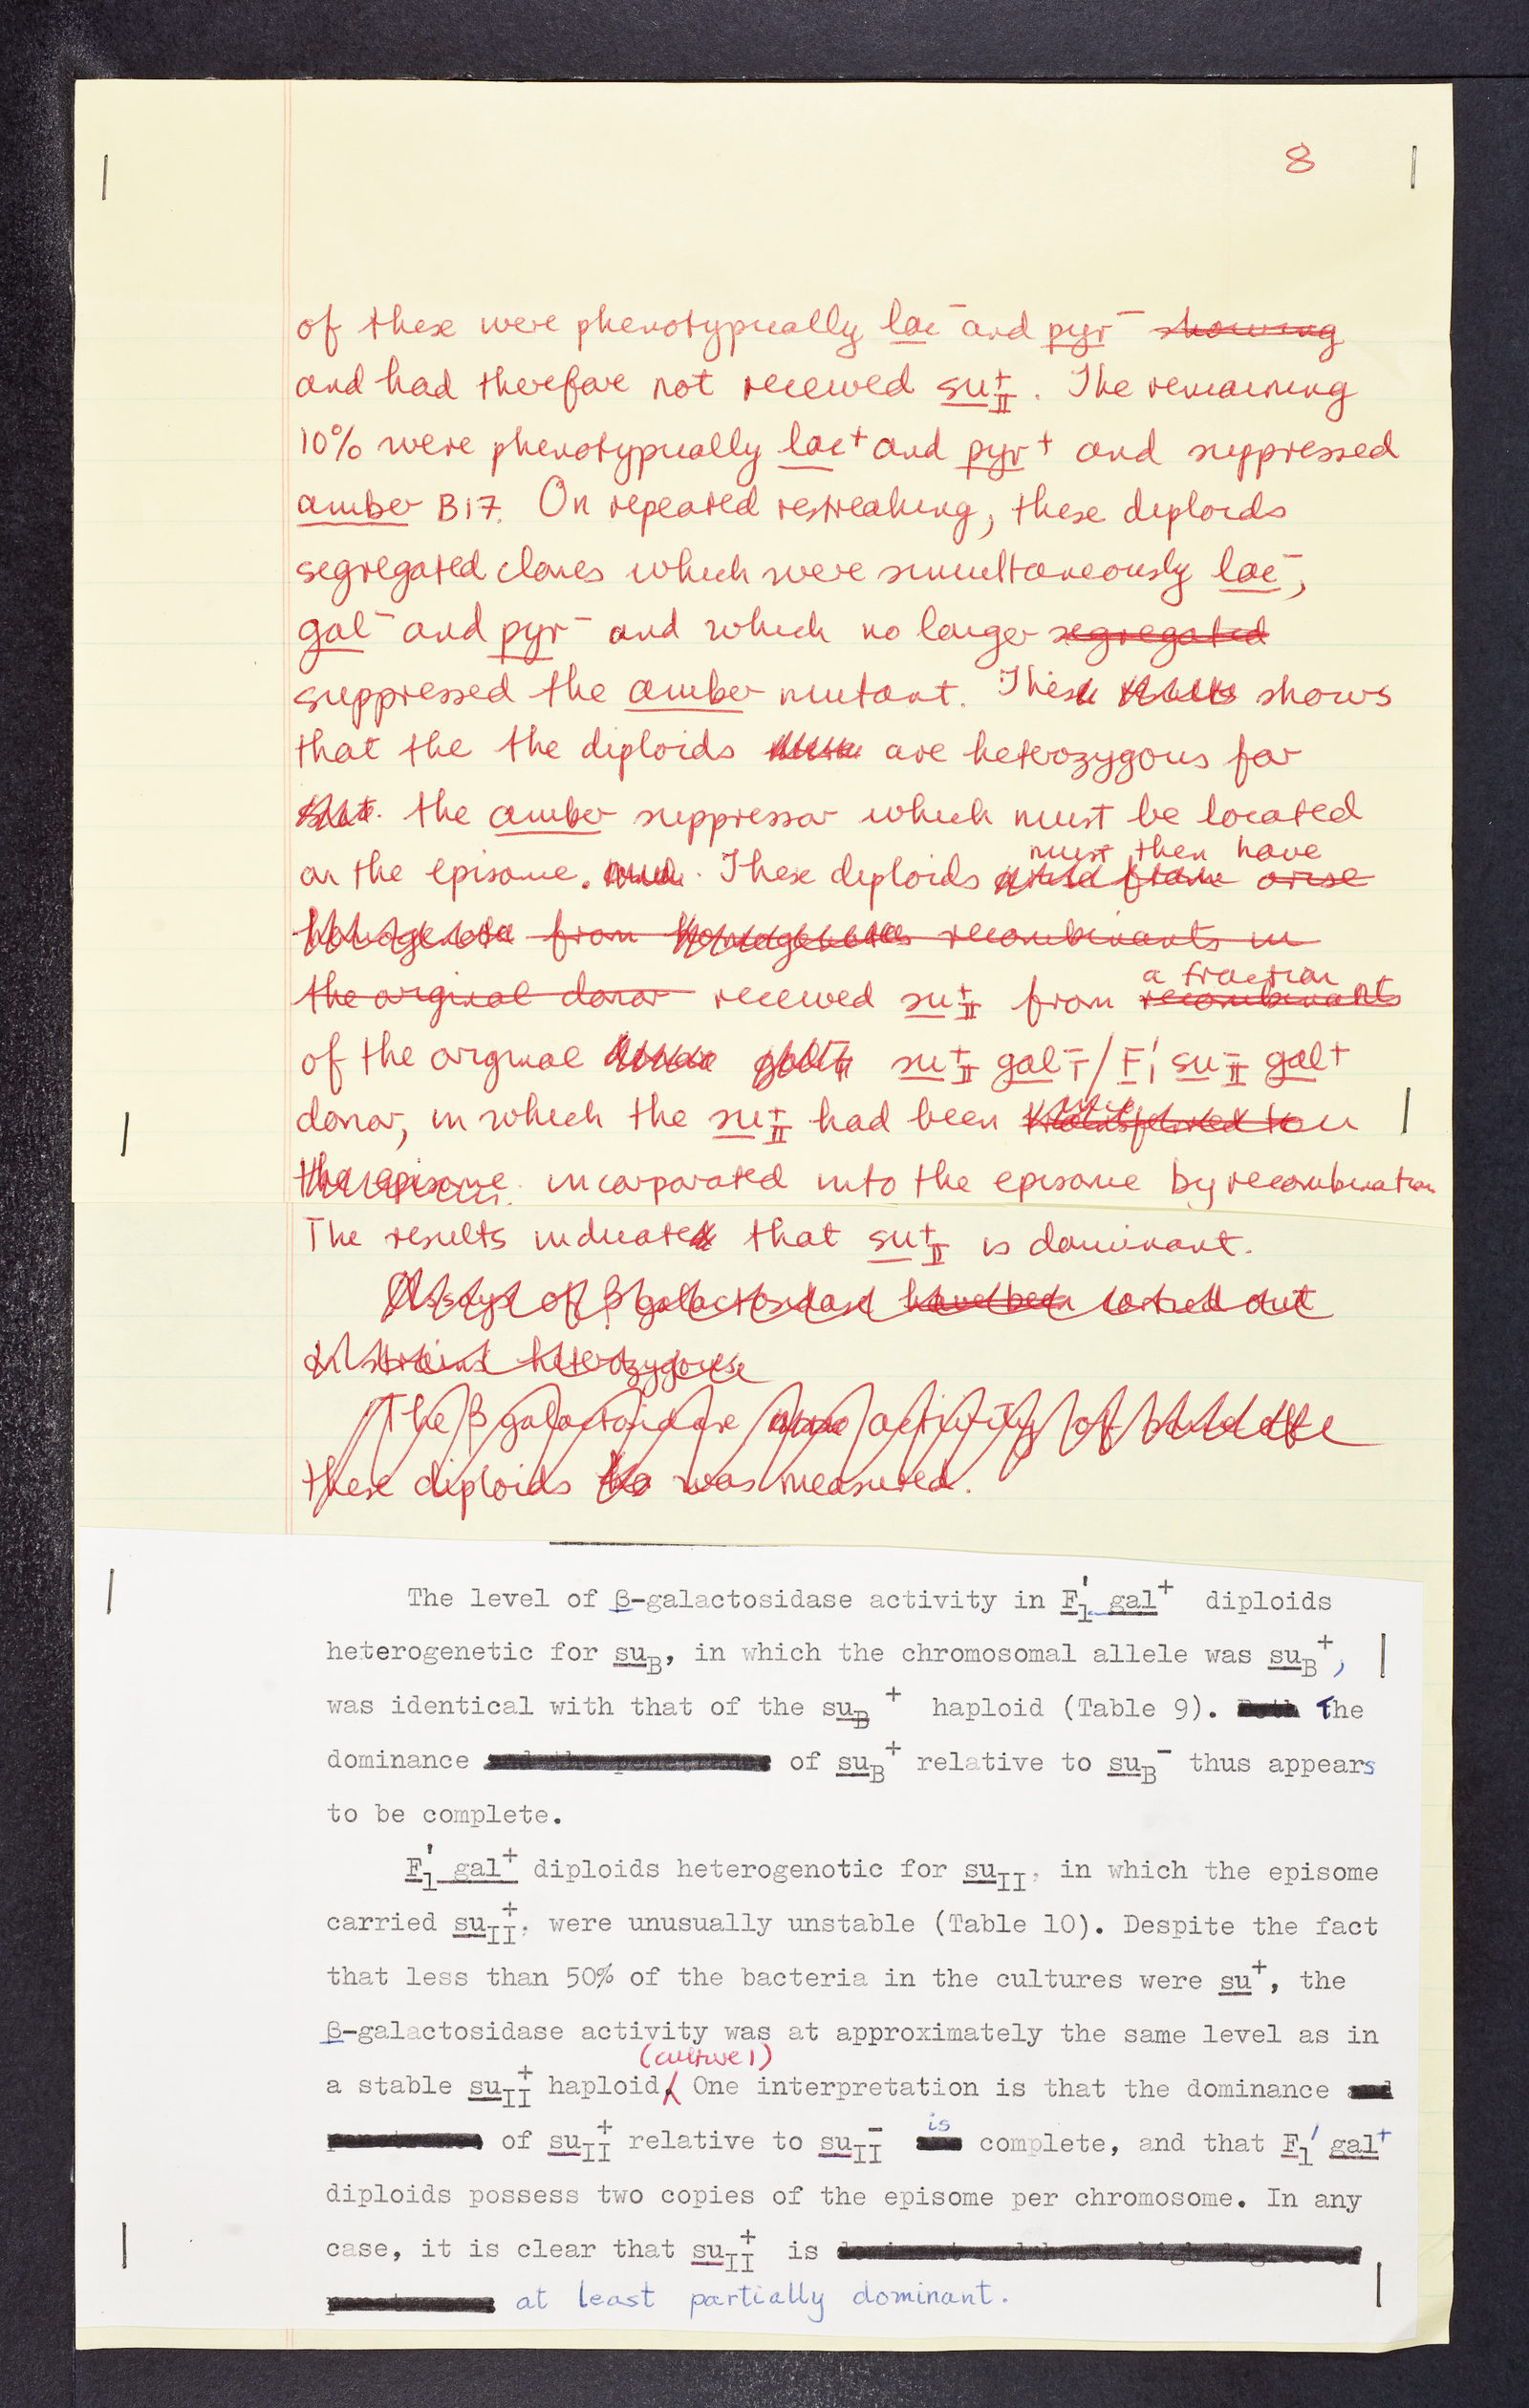 8
of these were phenotypically lac⁻ and pyr⁻ showing
and had therefore not received su⁺II. The remaining
10% were phenotypically lac⁺ and pyr⁺ and suppressed
amber B17. On repeated restreaking, these diploids
segregated clones which were simultaneously lac⁻,
gal⁻ and pyr⁻ and which no longer segregated
suppressed the amber mutant. This shows
that the the diploids are heterozygous for
the amber suppressor which must be located
must then have
on the episome. These diploids arise
from recombinants in
a fraction
the orginal donor received su⁺II from recombinants
of the orginal su⁺II gal⁻T/F₁' su⁻II gal⁺
donor, in which the su⁺II had been transferred to
the episome incorporated into the episome by recombination
The results indicate that su⁺II is dominant.
Assays of β galactosidase have been carried out
in strains heterozygous
The β galactosidase activity of
these diploids was measured.
The level of β-galactosidase activity in F₁' gal⁺ diploids
heterogenetic for suB, in which the chromosomal allele was suB⁺,
was identical with that of the suB⁺ haploid (Table 9). Both The
dominance and the penetrance of suB⁺ relative to suB⁻ thus appears
to be complete.
F₁' gal⁺ diploids heterogenotic for suII, in which the episome
carried suII⁺, were unusually unstable (Table 10). Despite the fact
that less than 50% of the bacteria in the cultures were su⁺, the
β-galactosidase activity was at approximately the same level as in
(culture 1)
a stable suII⁺ haploid. One interpretation is that the dominance and
is
penetrance of suII⁺ relative to suII⁻ complete, and that F₁' gal⁺
diploids possess two copies of the episome per chromosome. In any
case, it is clear that suII⁺ is dominant and has a high degree of
penetrance at least partially dominant.